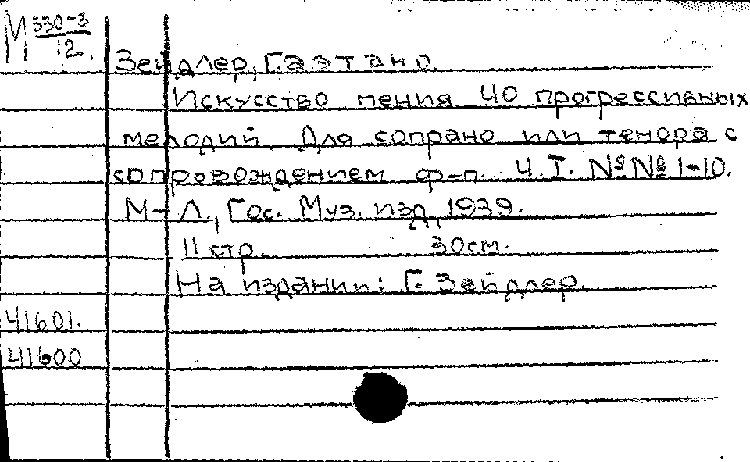 М 330-3
12.
Зейдлер, Гаэтано.
Искусство пения 40 прогрессивных
мелодий. Для сопрано или тенора с
сопровождением ф-п. Ч. I. №№ 1-10.
М-Л., Гос. Муз. изд, 1939.
11 стр. 30см.
На издании: Г. Зейдлер.
41601.
41600